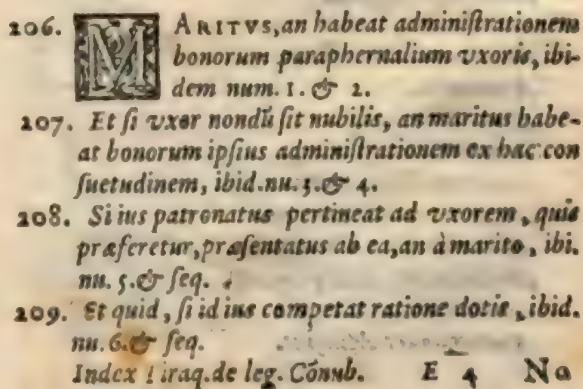 206. MARITVS, an habeat administrationem
bonorum paraphernalium vxoris, ibi-
dem num. 1. & 2.
207. Et si vxor nondū sit nubilis, an maritus habe-
at bonorum ipsius administrationem ex hac con
suetudinem, ibid. nu. 3. & 4.
208. Si ius patronatus pertineat ad vxorem, quis
præferetur, præsentatus ab ea, an à marito, ibi.
nu. 5. & seq.
209. Et quid, si id ius competat ratione dotis, ibid.
nu. 6. & seq.
Index Tiraq. de leg. Cōnub. E 4 No